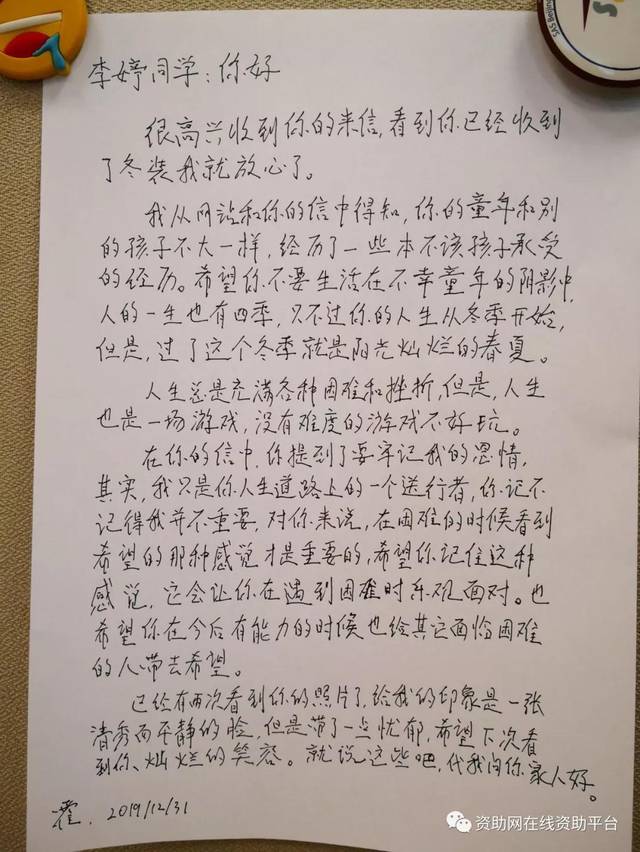 李婷同学：你好
很高兴收到你的来信，看到你已经收到
了冬装我就放心了。
我从网站和你的信中得知，你的童年和别
的孩子不大一样，经历了一些本不该孩子承受
的经历。希望你不要生活在不幸童年的阴影中，
人的一生也有四季，只不过你的人生从冬季开始，
但是，过了这个冬季就是阳光灿烂的春夏。
人生总是充满各种困难和挫折，但是，人生
也是一场游戏，没有难度的游戏不好玩。
在你的信中，你提到了要牢记我的恩情，
其实，我只是你人生道路上的一个送行者，你记不
记得我并不重要，对你来说，在困难的时候看到
希望的那种感觉才是重要的，希望你记住这种
感觉，它会让你在遇到困难时乐观面对。也
希望你在今后有能力的时候也给其它面临困难
的人带去希望。
已经有两次看到你的照片了，给我的印象是一张
清秀而平静的脸，但是带了一点忧郁，希望下次看
到你、灿烂的笑容。就说这些吧，代我问你家人好。
霍．2019/12/31
资助网在线资助平台
SAS Beijing